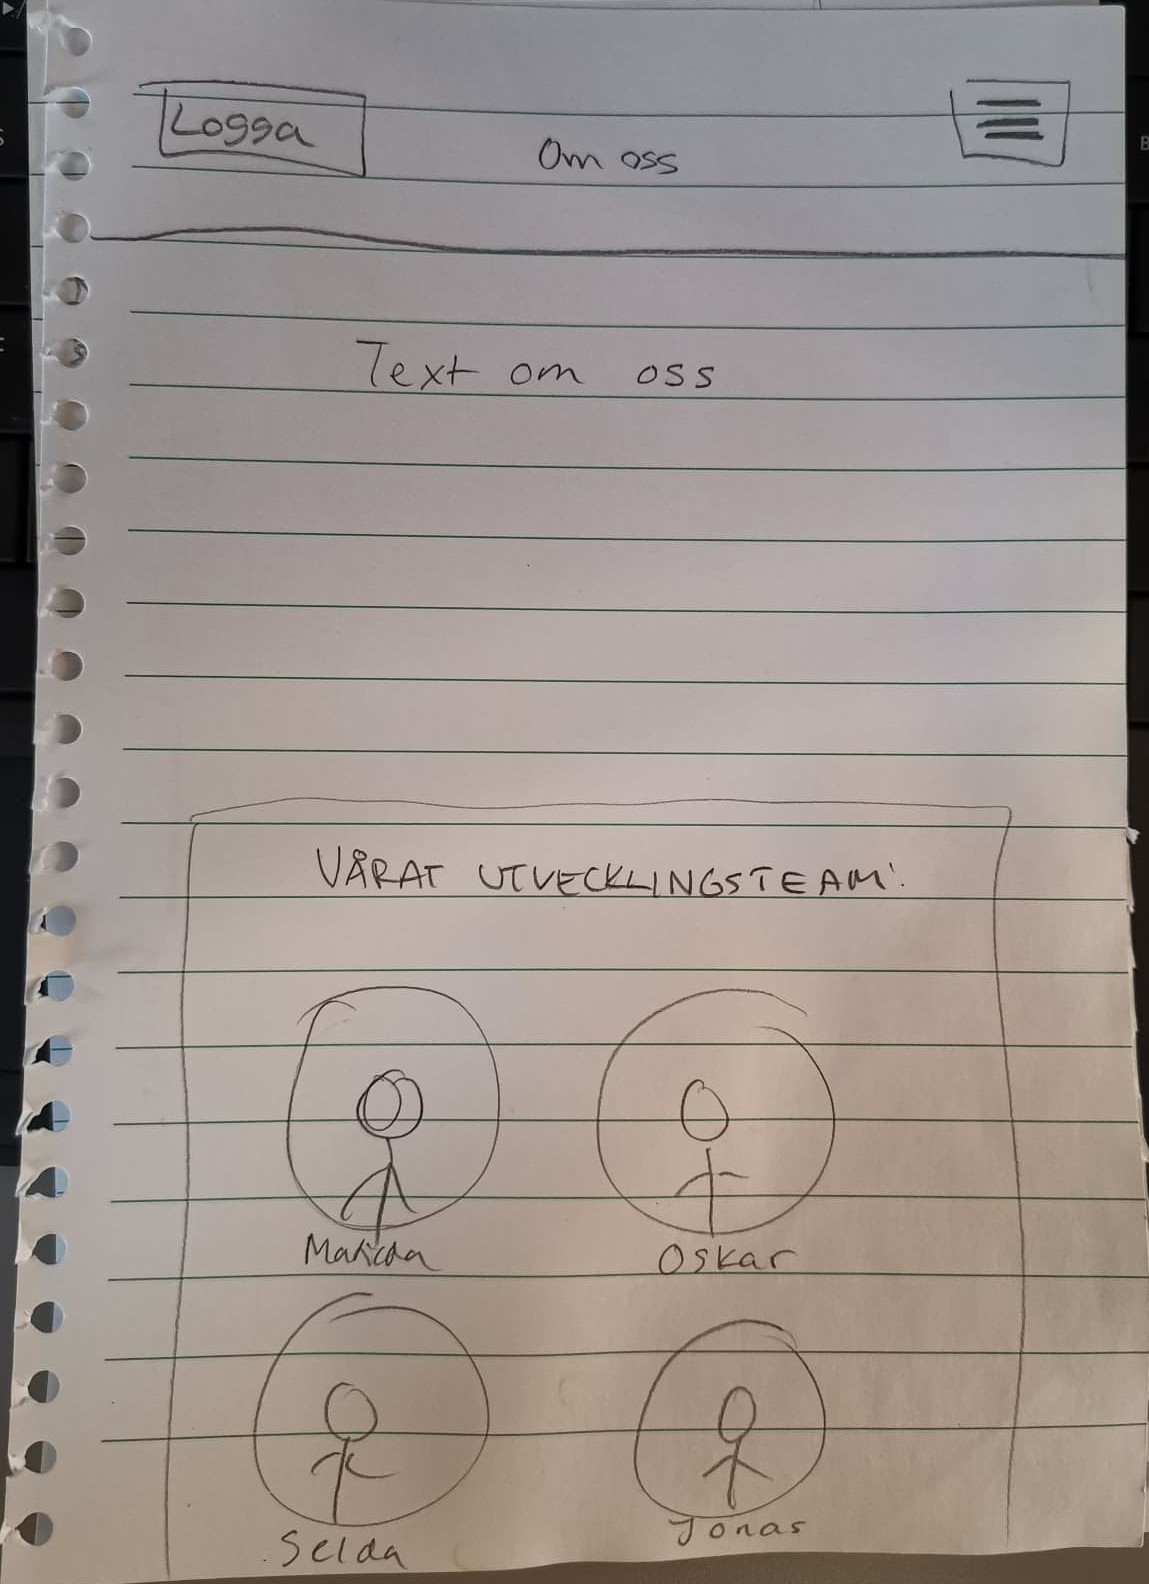 Logga
Om oss
Text om oss
VÅRAT UTVECKLINGSTEAM:
Matilda Oskar
Selda Jonas